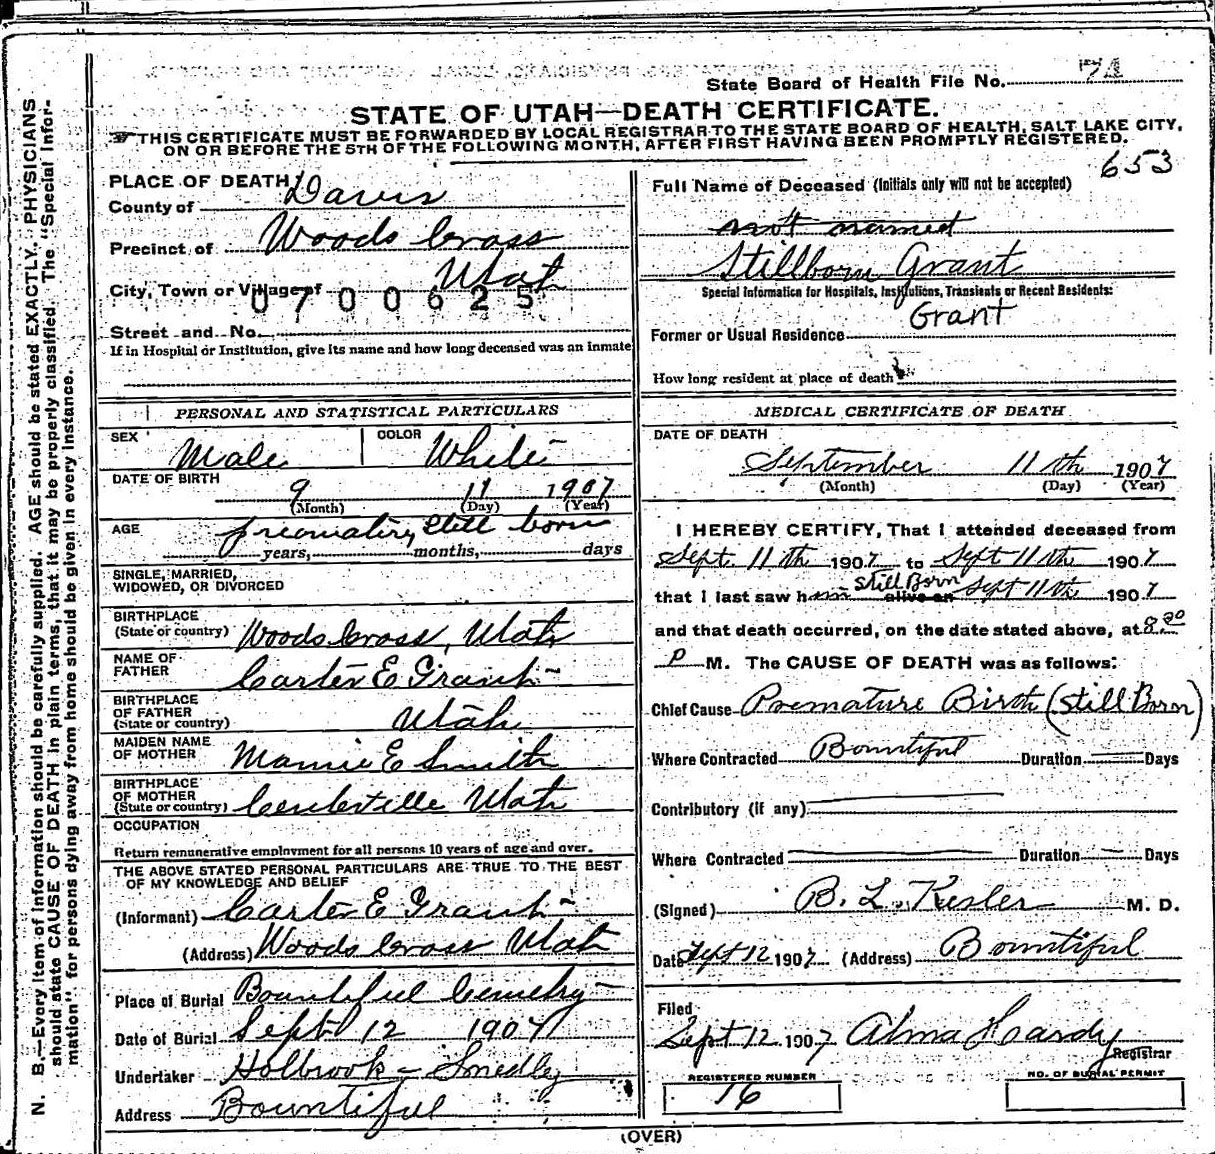 State Board of Health File No. 71
STATE OF UTAH—DEATH CERTIFICATE.
THIS CERTIFICATE MUST BE FORWARDED BY LOCAL REGISTRAR TO THE STATE BOARD OF HEALTH, SALT LAKE CITY,
ON OR BEFORE THE 5TH OF THE FOLLOWING MONTH, AFTER FIRST HAVING BEEN PROMPTLY REGISTERED.
653
N. B.—Every item of information should be carefully supplied. AGE should be stated EXACTLY. PHYSICIANS
should state CAUSE OF DEATH in plain terms, that it may be properly classified. The "Special Infor-
mation" for persons dying away from home should be given in every instance.
PLACE OF DEATH
County of Davis
Precinct of Woods Cross
City, Town or Village of Utah
0700625
Street and No.
If in Hospital or Institution, give its name and how long deceased was an inmate
PERSONAL AND STATISTICAL PARTICULARS
SEX Male COLOR White
DATE OF BIRTH 9 11 1907
(Month) (Day) (Year)
AGE still born
years, months, days
SINGLE, MARRIED,
WIDOWED, OR DIVORCED
BIRTHPLACE
(State or country) Woods Cross, Utah
NAME OF
FATHER Carter E Grant
BIRTHPLACE
OF FATHER
(State or country) Utah
MAIDEN NAME
OF MOTHER Mamie E Smith
BIRTHPLACE
OF MOTHER
(State or country) Centerville Utah
OCCUPATION
Return remunerative employment for all persons 10 years of age and over.
THE ABOVE STATED PERSONAL PARTICULARS ARE TRUE TO THE BEST
OF MY KNOWLEDGE AND BELIEF
(Informant) Carter E Grant
(Address) Woods Cross Utah
Place of Burial Bountiful Cemetry
Date of Burial Sept 12 1907
Undertaker Holbrook - Smedley
Address Bountiful
Full Name of Deceased (Initials only will not be accepted)
not named
Stillborn Grant
Special Information for Hospitals, Institutions, Transients or Recent Residents:
Grant
Former or Usual Residence
How long resident at place of death
MEDICAL CERTIFICATE OF DEATH
DATE OF DEATH
September 11th 1907
(Month) (Day) (Year)
I HEREBY CERTIFY, That I attended deceased from
Sept. 11th 1907 to Sept 11th 1907
Still Born
that I last saw him alive on Sept 11th 1907
and that death occurred, on the date stated above, at 8.30
P M. The CAUSE OF DEATH was as follows:
Chief Cause Premature Birth (Still Born)
Where Contracted Bountiful Duration Days
Contributory (if any)
Where Contracted Duration Days
(Signed) B. L. Kesler M. D.
Date Sept 12 1907 (Address) Bountiful
Filed
Sept 12 1907 Alma Hardy
Registrar
REGISTERED NUMBER NO. OF BURIAL PERMIT
16
(OVER)